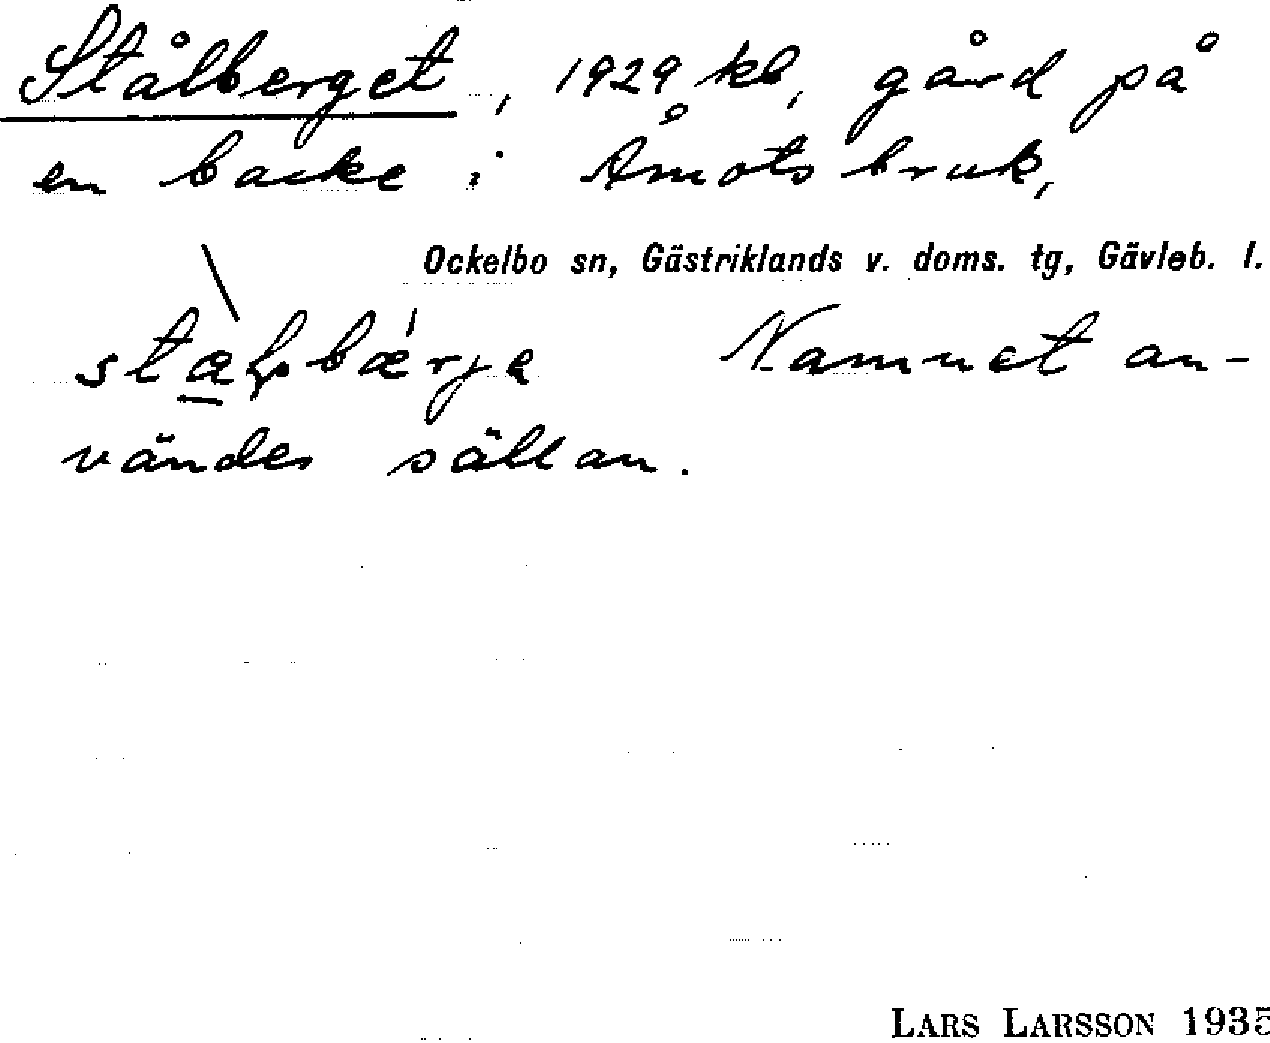 Stålberget, 1929 kb, gård på
en backe i Åmots bruk,
Ockelbo sn, Gästriklands v. doms. tg, Gävleb. l.
Namnet an-
vändes sällan.
LARS LARSSON 1935